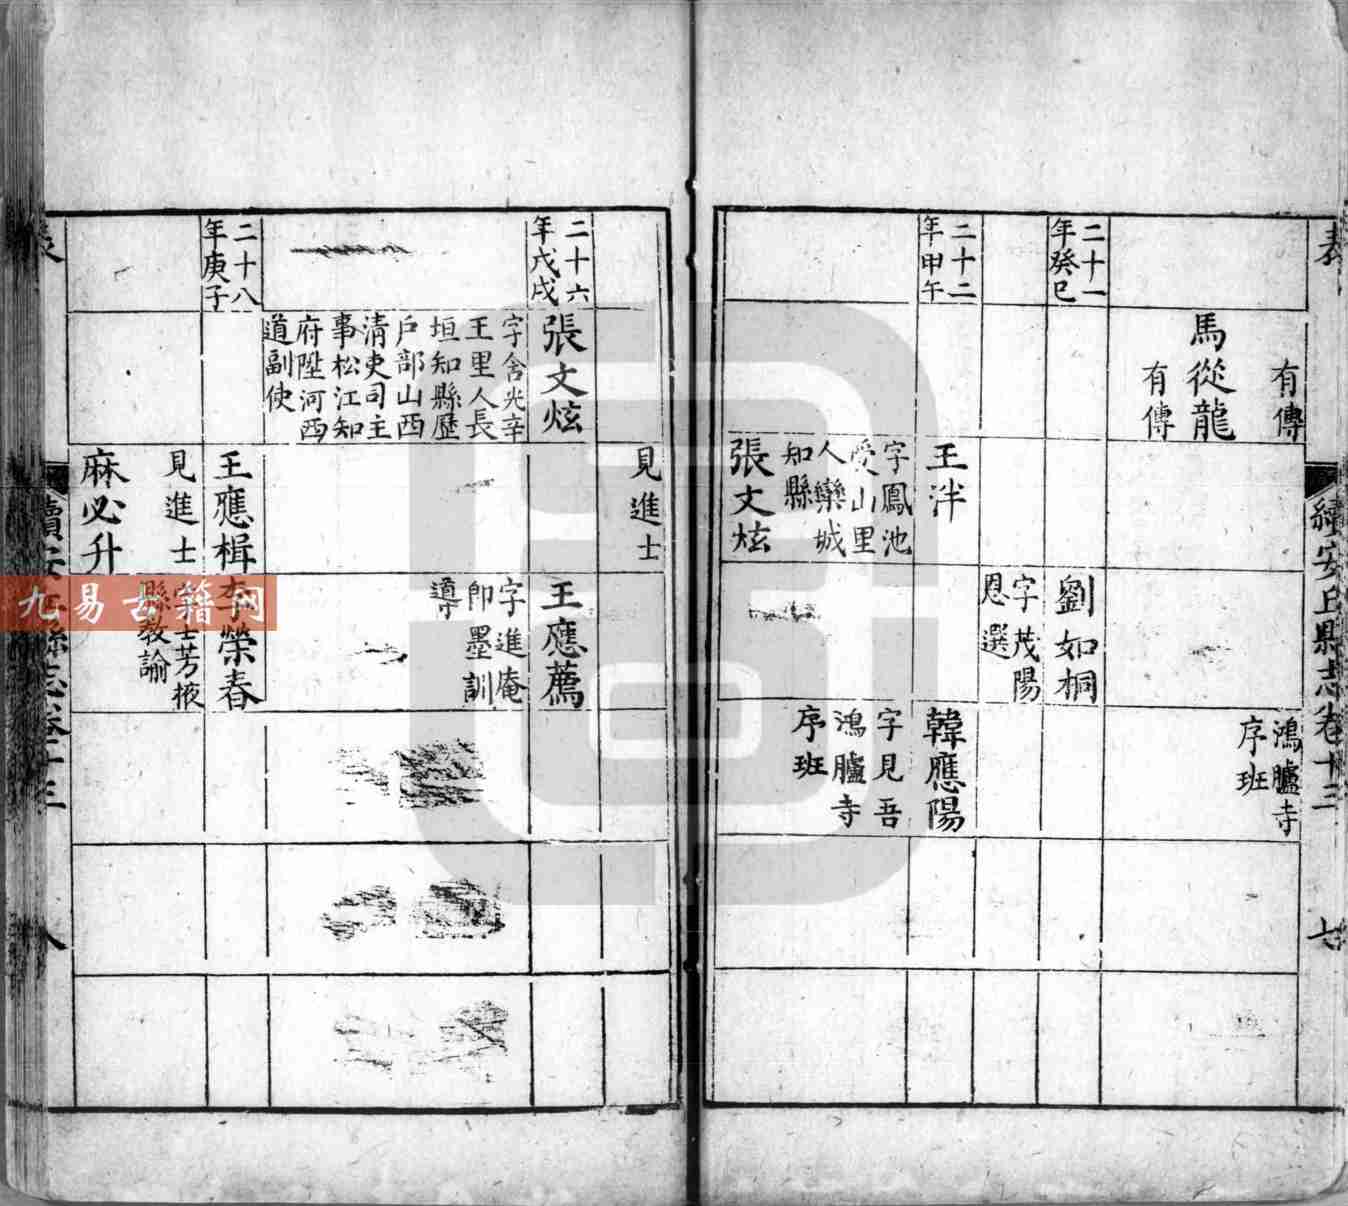 表
續安丘縣志卷十三
七
有傳
馬從龍
有傳
鴻臚寺
序班
二十一
年癸巳
劉如桐
字茂陽
恩選
二十二
年甲午
王泮
字鳳池
受山里
人欒城
知縣
張文炫
韓應陽
字見吾
鴻臚寺
序班
見進士
二十六
年戊戌
張文炫
字含光辛
王里人長
垣知縣歷
戶部山西
清吏司主
事松江知
府陞河西
道副使
王應薦
字進庵
即墨訓
導
二十八
年庚子
王應楫
見進士
麻必升
李榮春
字士芳掖
縣教諭
八
九易古籍网